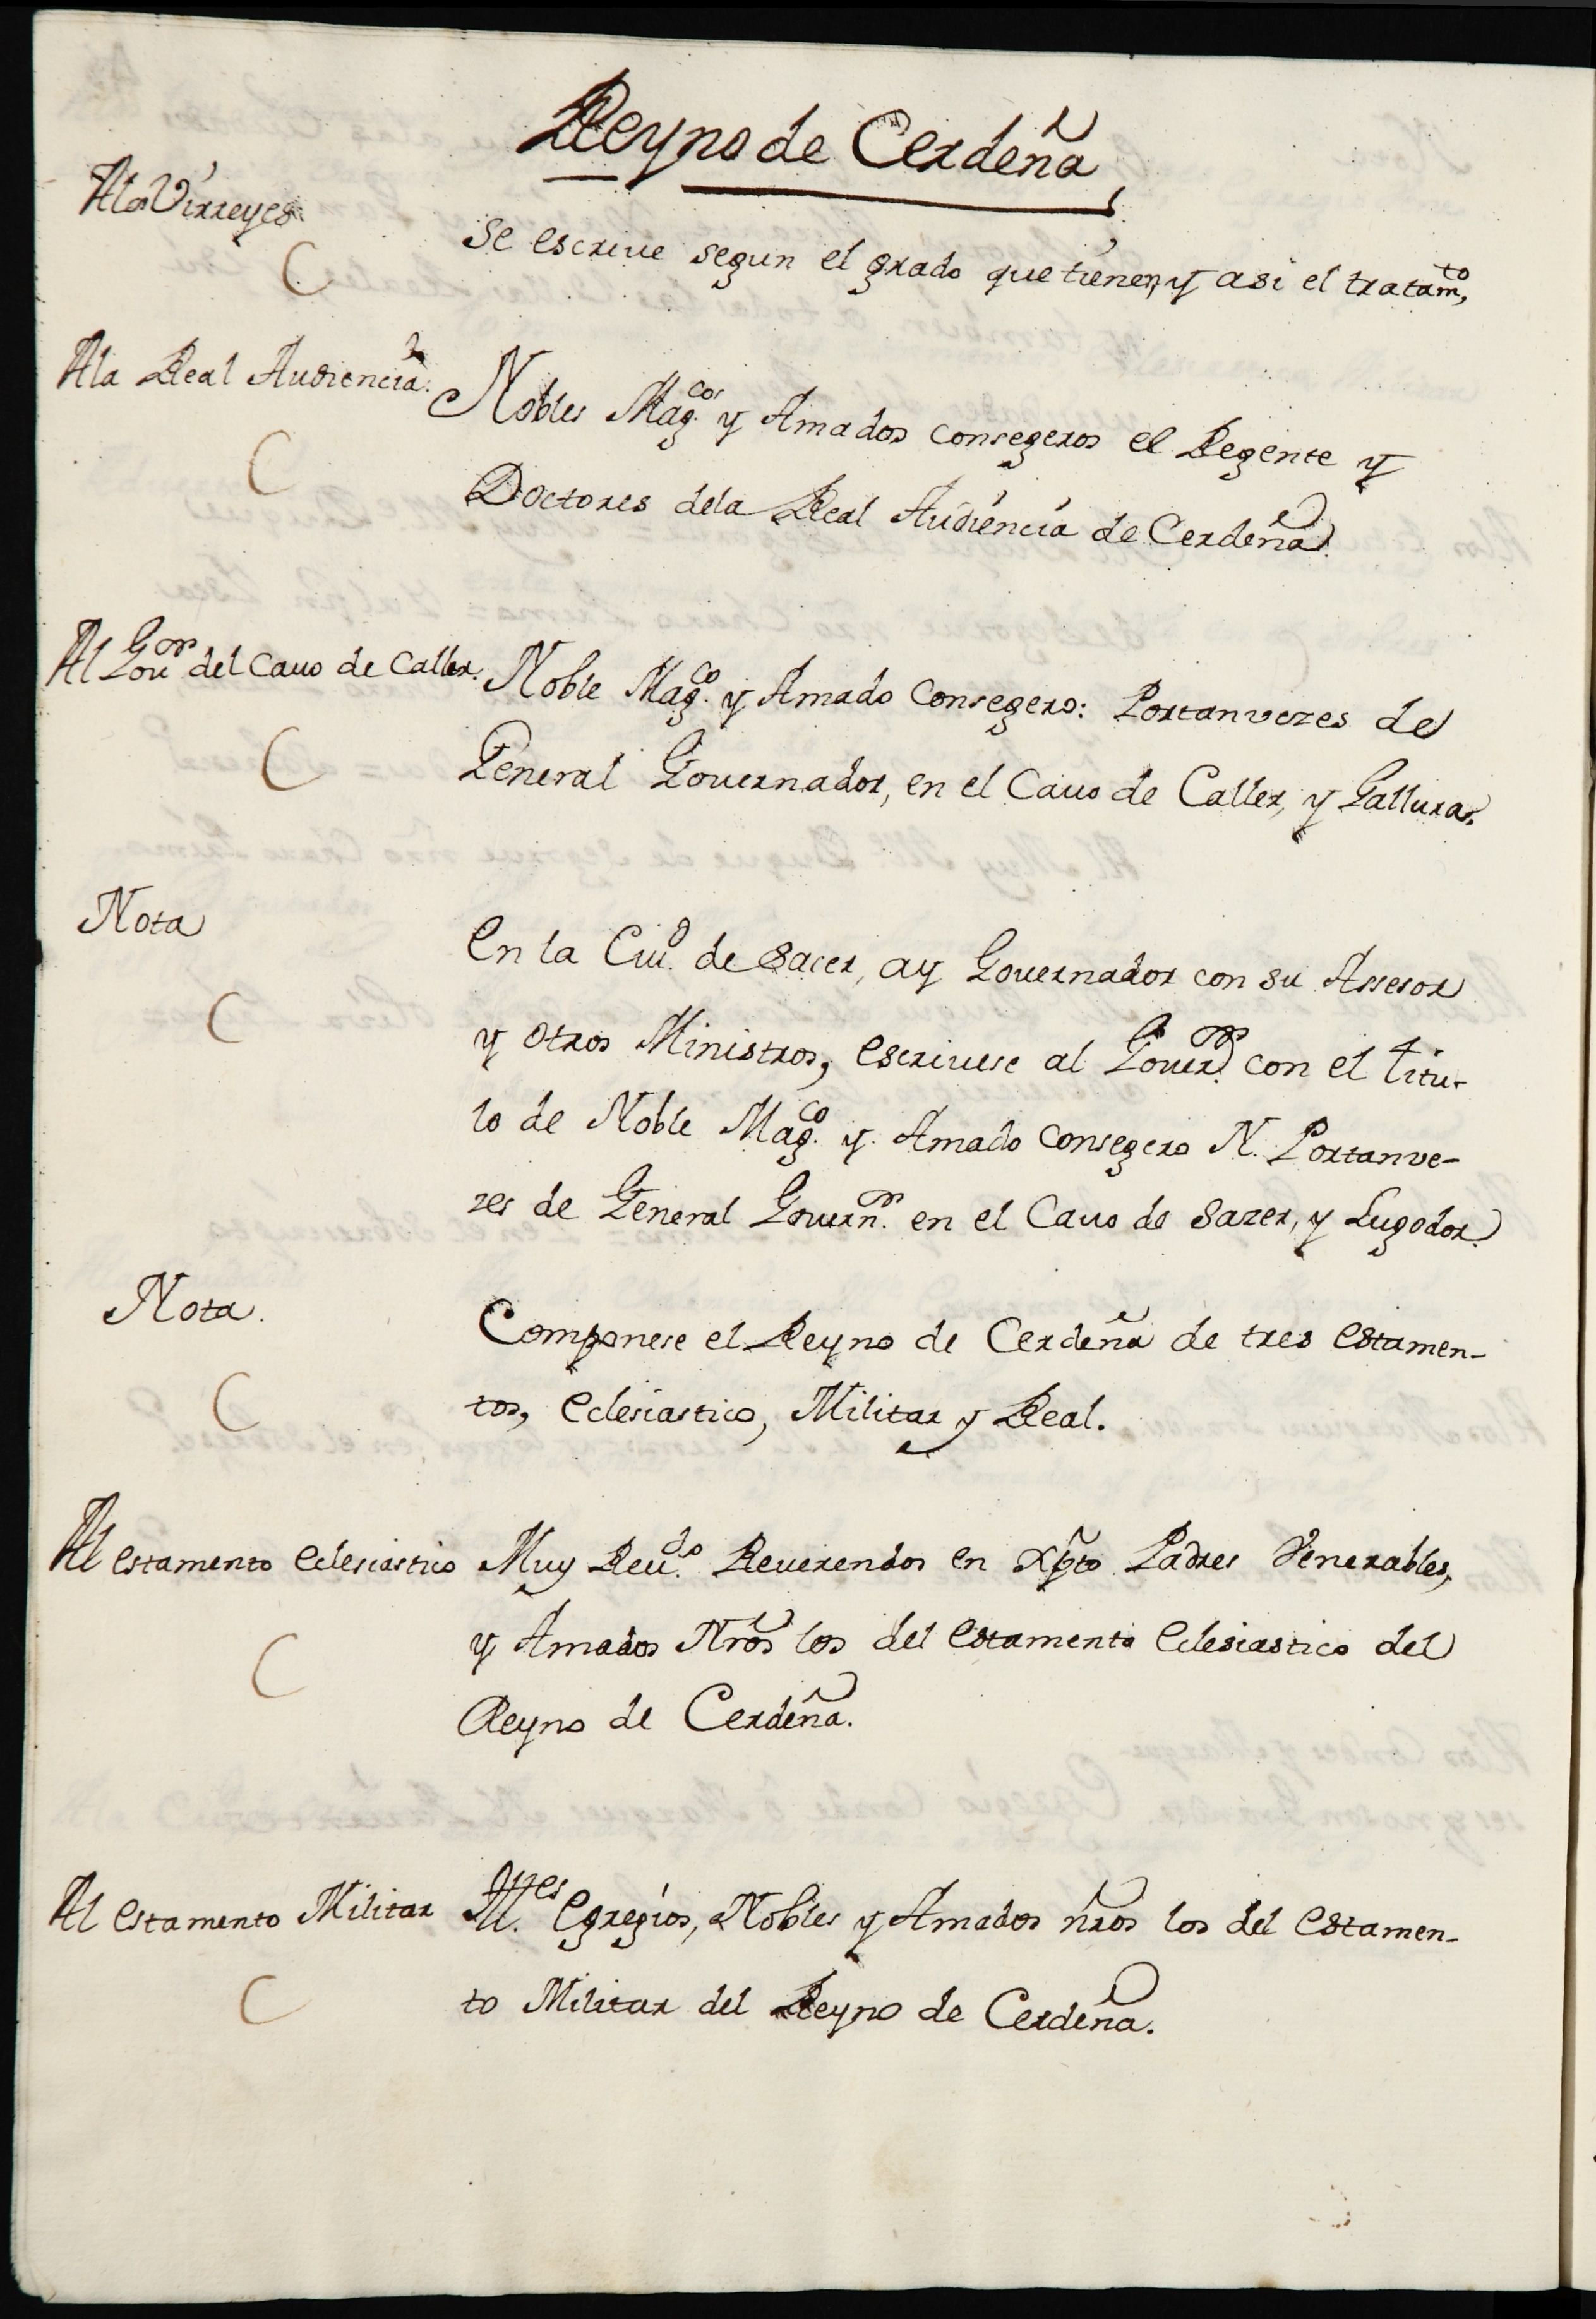 Reyno de Cerdeña
A los Virreyes
C
se escrive segun el grado que tienen, y asi el tratam.to
A la Real Audiencia.
C
Nobles Mag.cos y Amados consegeros el Regente y
Doctores dela Real Audiencia de Cerdeña
Al Gov.or del Cavo de Caller.
C
Noble Mag.co y Amado Consegero: Portanvezes de
General Governador, en el Cavo de Caller, y Gallura.
Nota
C
En la Ciu.d de Sacer, ay Governador con su Assesor
y otros Ministros, escrivese al Gover.or con el titu-
lo de Noble Mag.co y Amado consegero N. Portanve-
zes de General Govern.or en el Cavo de Sazer, y Lugodor
Nota.
C
Componese el Reyno de Cerdeña de tres estamen-
tos, eclesiastico, Militar y Real.
Al estamento eclesiastico
C
Muy Reu.do Reverendos en Xp̃to Padres Venerables,
y Amados Nr̃os los del estamento eclesiastico del
Reyno de Cerdeña.
Al estamento Militar
C
Ill.es Egregios, Nobles y Amados nr̃os los del estamen-
to Militar del Reyno de Cerdeña.